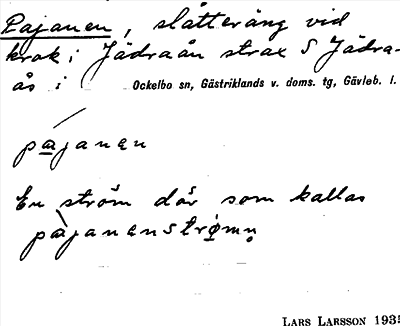 Pajanen, slåtteräng vid
krok i Jädraån strax S Jädra-
ås i Ockelbo sn, Gästriklands v. doms. tg, Gävleb. l.
pajanen
En ström där som kallas
pàjanenstrǫmn̥
LARS LARSSON 1935